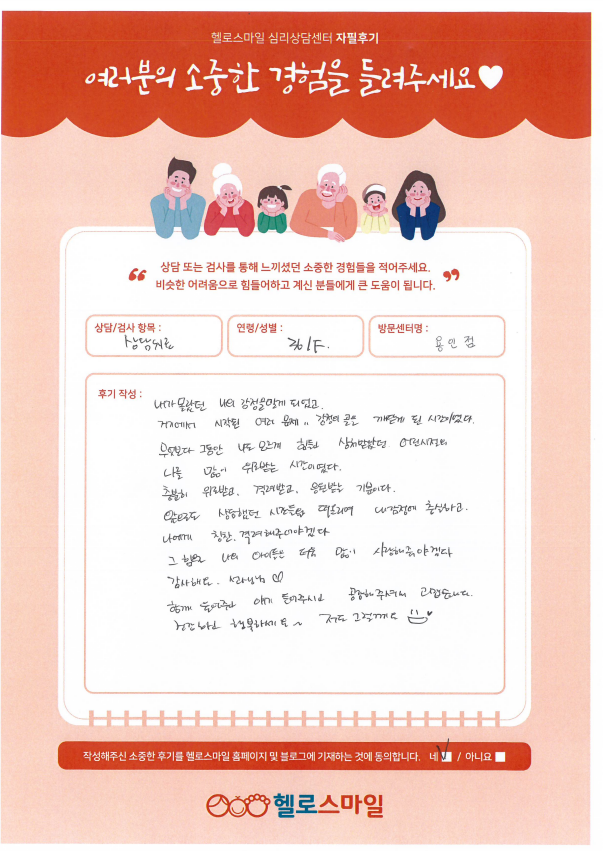 헬로스마일 심리상담센터 자필후기
여러분의 소중한 경험을 들려주세요♥
“ 상담 또는 검사를 통해 느끼셨던 소중한 경험들을 적어주세요.
비슷한 어려움으로 힘들어하고 계신 분들에게 큰 도움이 됩니다. ”
상담/검사 항목 : 상담치료
연령/성별 :
방문센터명 : 용인점
후기 작성 :
내가 몰랐던 나의 감정을 알게 되었고,
거기에서 시작된 여러 문제 .. 감정의 골을 깨닫게 된 시간이었다.
무엇보다 그동안 나도 모르게 힘들고 상처받았던 어린시절의
나를 많이 위로받는 시간이었다.
충분히 위로받고, 격려받고, 응원받는 기분이다.
앞으로도 상담했던 시간들을 떠올리며 내 감정에 충실하고.
나에게 칭찬, 격려해주어야겠다
그 힘으로 나의 아이들을 더욱 많이 사랑해줘야겠다
감사해요. 선생님 ♡
함께 울어주고 얘기 들어주시고 공감해주셔서 고맙습니다.
건강하시고 행복하세요~ 저도 그럴께요
작성해주신 소중한 후기를 헬로스마일 홈페이지 및 블로그에 기재하는 것에 동의합니다. 네 ✓ / 아니요
헬로스마일